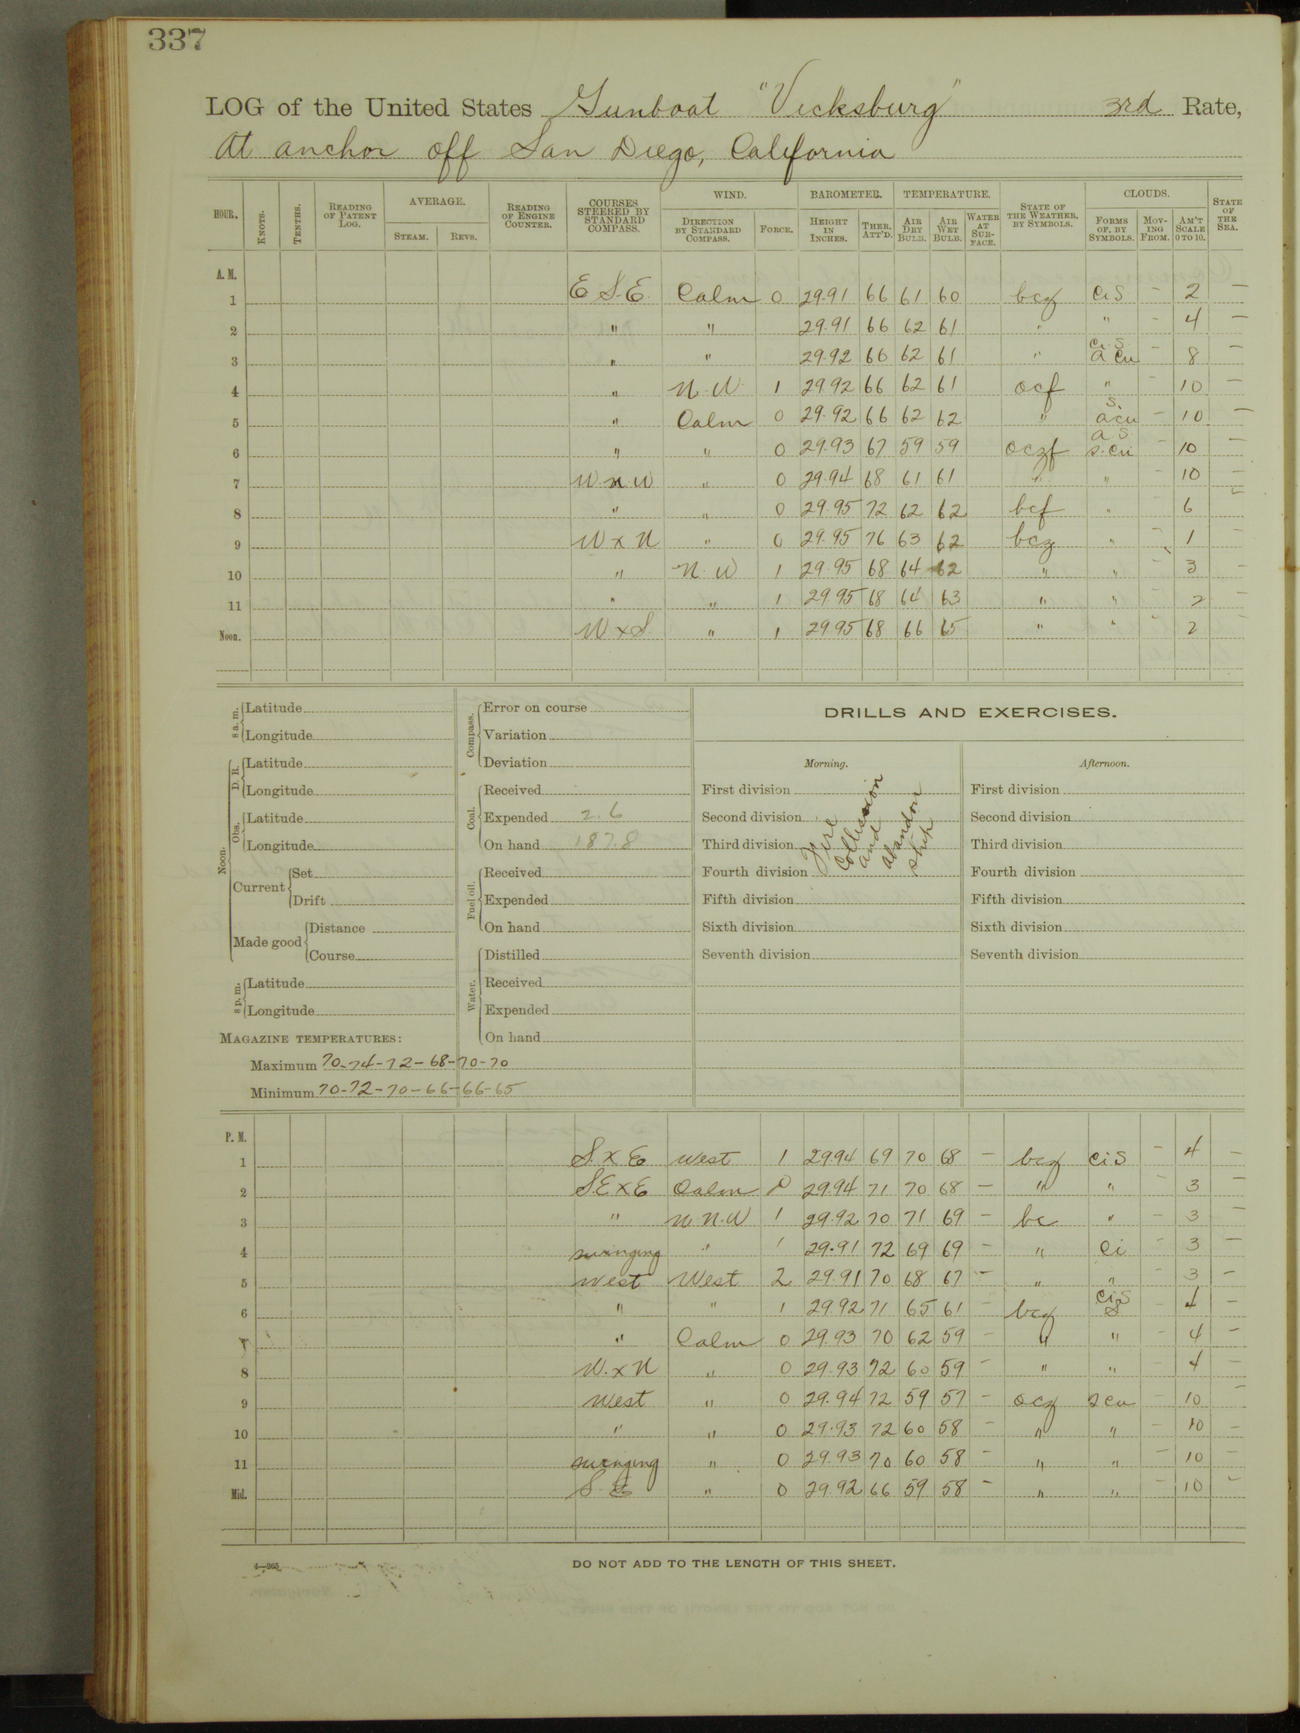 337
LOG of the United States Gunboat "Vicksburg" 3rd Rate,
At anchor off San Diego, California
HOUR. KNOTS. TENTHS. READING OF PATENT LOG. AVERAGE. STEAM. REVS. READING OF ENGINE COUNTER. COURSES STEERED BY STANDARD COMPASS. WIND. DIRECTION BY STANDARD COMPASS. FORCE. BAROMETER. HEIGHT IN INCHES. THER. ATT'D. TEMPERATURE. AIR DRY BULB. AIR WET BULB. WATER AT SURFACE. STATE OF THE WEATHER, BY SYMBOLS. CLOUDS. FORMS OF, BY SYMBOLS. MOVING FROM. AM'T SCALE 0 TO 10. STATE OF THE SEA.
A. M.
1 E S.E. Calm 0 29.91 66 61 60 bcz Ci S - 2 -
2 " " 29.91 66 62 61 " " - 4 -
3 " " 29.92 66 62 61 " Ci S A Cu - 8 -
4 " N.W. 1 29.92 66 62 61 ocf " - 10 -
5 " Calm 0 29.92 66 62 62 " S. a cu - 10 -
6 " " 0 29.93 67 59 59 oczf a S s. cu 10
7 W N W " 0 29.94 68 61 61 " " - 10 -
8 " " 0 29.95 72 62 62 bcf " 6
9 W x N " 0 29.95 76 63 62 bcz " - 1 -
10 " N.W 1 29.95 68 64 62 " " - 3 -
11 " " 1 29.95 68 64 63 " " - 2 -
Noon. W x S. " 1 29.95 68 66 65 " " - 2 -
8 a. m. Latitude
Longitude
Noon. D. R. Latitude
Longitude
Obs. Latitude
Longitude
Current Set
Drift
Made good Distance
Course
8 p. m. Latitude
Longitude
MAGAZINE TEMPERATURES:
Maximum 70-74-72-68-70-70
Minimum 70-72-70-66-66-65
Compass. Error on course
Variation
Deviation
Coal. Received
Expended 2.6
On hand 187.8
Fuel oil. Received
Expended
On hand
Water. Distilled
Received
Expended
On hand
DRILLS AND EXERCISES.
Morning.
First division
Second division
Third division
Fourth division
Fifth division
Sixth division
Seventh division
Fire
Collission
and
abandon
ship
Afternoon.
First division
Second division
Third division
Fourth division
Fifth division
Sixth division
Seventh division
P. M.
1 S. x E west 1 29.94 69 70 68 - bcz Ci S - 4 -
2 S.E x E Calm 0 29.94 71 70 68 - " " - 3 -
3 " N. N. W 1 29.92 70 71 69 - bc " - 3 -
4 swinging " 1 29.91 72 69 69 - " Ci - 3 -
5 west West 2 29.91 70 68 67 - " " - 3 -
6 " " 1 29.92 71 65 61 - bcz Ci S - 4 -
7 " Calm 0 29.93 70 62 59 - " " - 4 -
8 W. x N " 0 29.93 72 60 59 - " " - 4 -
9 West " 0 29.94 72 59 57 - ocz s cu - 10 -
10 " " 0 29.93 72 60 58 - " " - 10 -
11 swinging " 0 29.93 70 60 58 - " " - 10 -
Mid. S. E " 0 29.92 66 59 58 - " " - 10 -
DO NOT ADD TO THE LENGTH OF THIS SHEET.